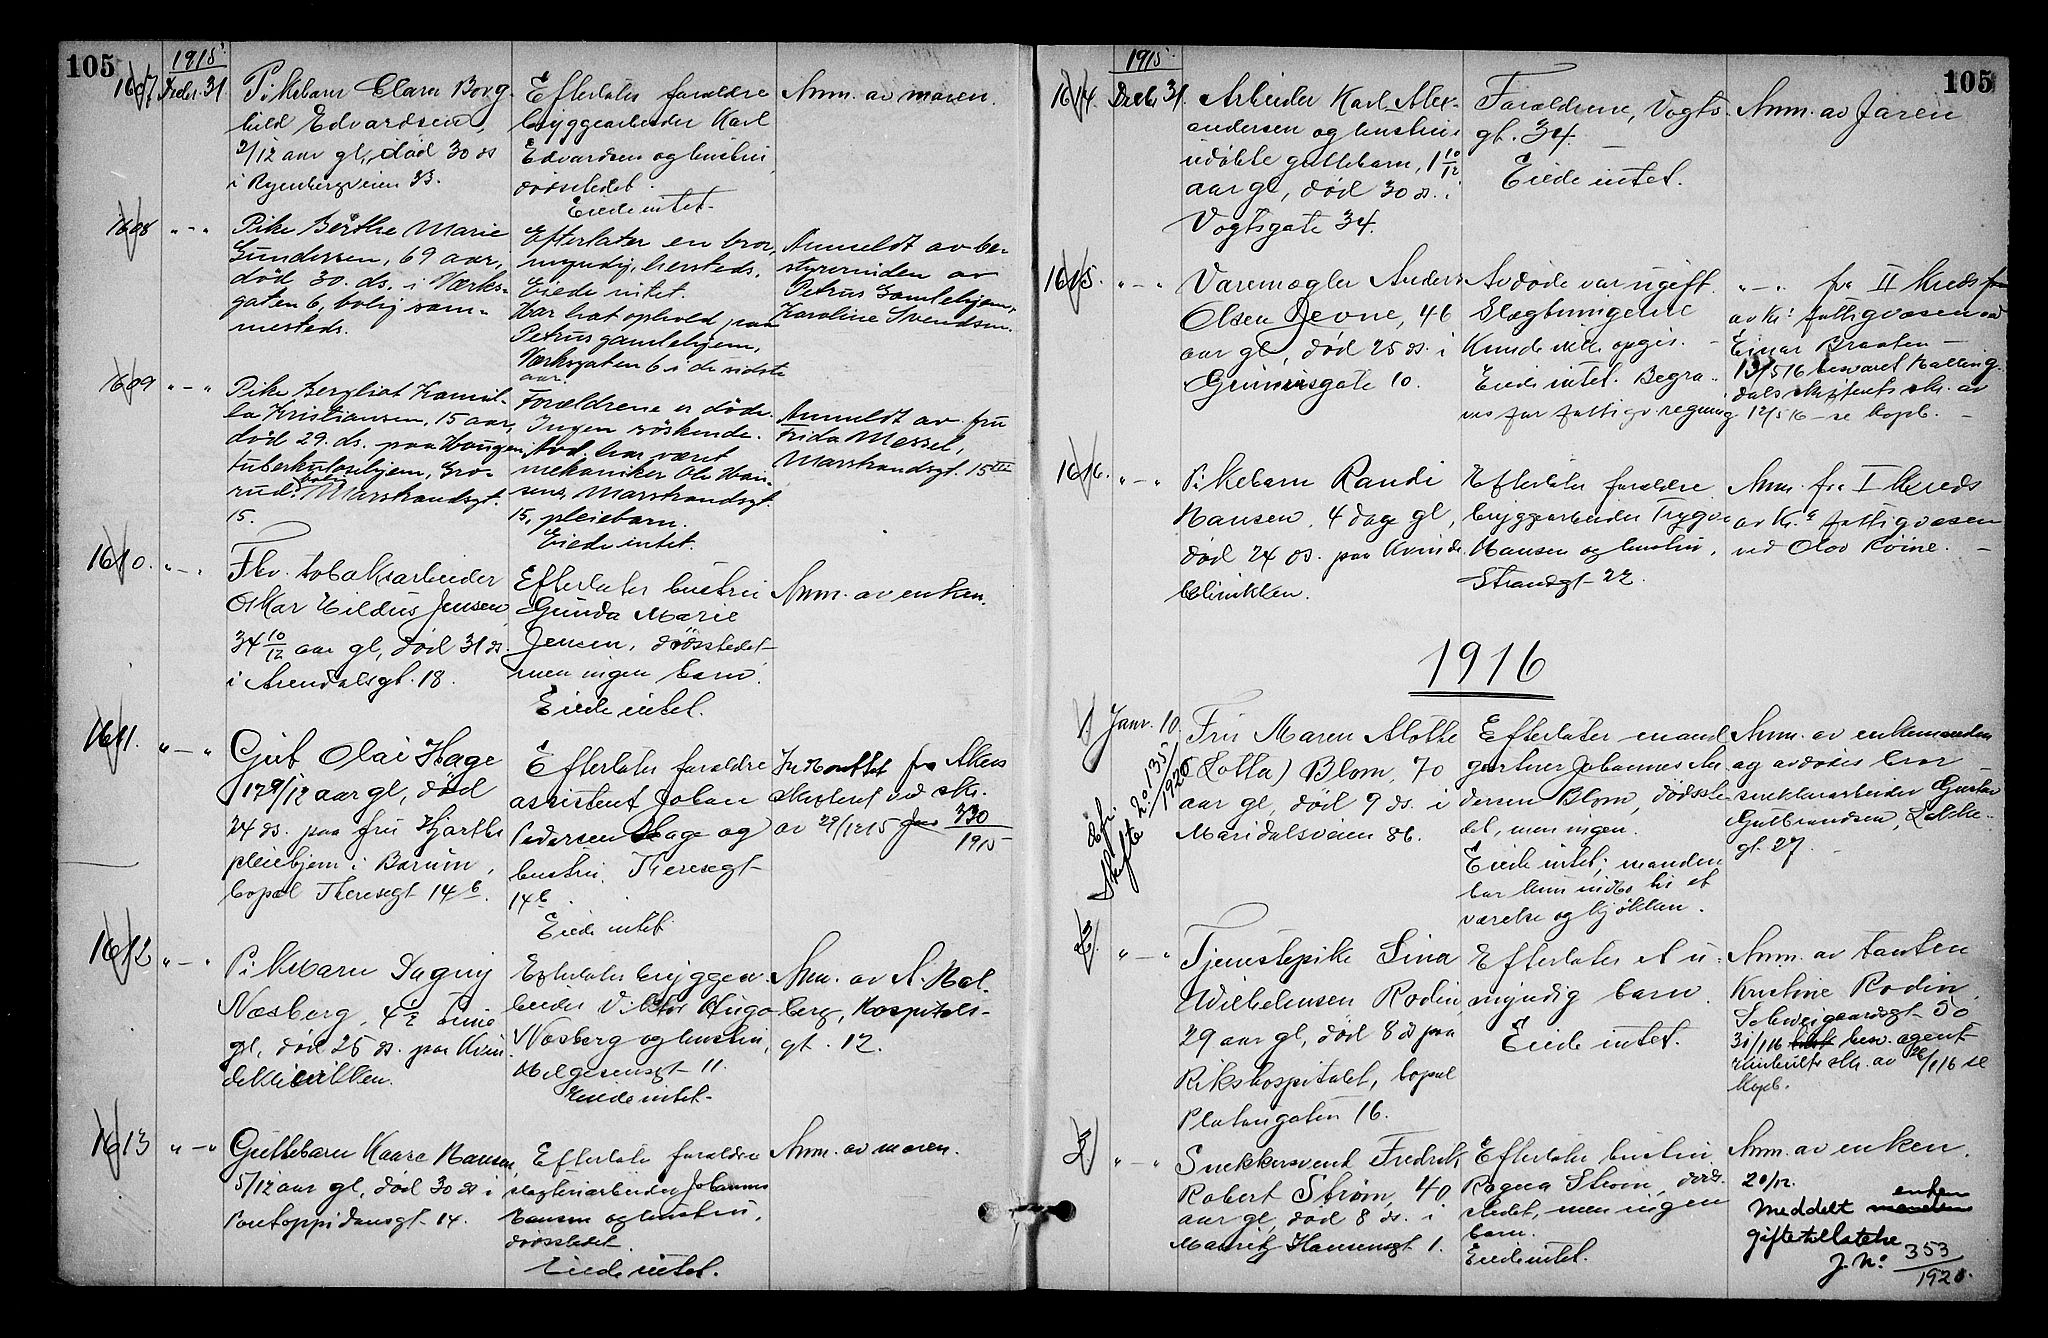 105
1915
1607 Decbr. 31.
Pikebarn Clara Borg-
hild Edvardsen,
2/12 aar gl, død 30 ds
i Ryenbergveien 33.
Efterlater forældre
bryggearbeider Karl
Edvardsen og hustru,
dødsstedet.
Eiede intet.
Anm. av moren.
1608 " - "
Pike Berthe Marie
Gundersen, 69 aar,
død 30. ds. i Værks-
gaten 6, bolig sam-
mesteds.
Efterlater en bror,
myndig, hersteds.
Eiede intet.
Har hat ophold paa
Petrus gamlehjem,
Værksgaten 6 i de sidste
aar.
Anmeldt av be-
styrerinden av
Petrus Gamlehjem,
Karoline Svendsen.
1609 " - "
Pike Bergliot Kamil-
la Kristiansen, 15 aar,
død 29. ds. paa Haugen
tuberkulosehjem, Gro-
rud. bolig Marstrandsgt.
15.
Forældrene er døde.
Ingen søskende.
Avd. har været
mekaniker Ole Han-
sens, Marstrandsgt.
15, pleiebarn.
Eiede intet.
Anmeldt av fru
Frida Messel,
Marstrandsgt. 15 III
1610. " - "
Fhv. tobaksarbeider
Oskar Hildus Jensen,
34 10/12 aar gl, død 31 ds.
i Arendalsgt. 18.
Efterlater hustru
Gunda Marie
Jensen, dødsstedet
men ingen barn.
Eiede intet.
Anm. av enken.
1611. " - "
Gut Olai Hage
17 9/12 aar gl, død
24 ds. paa fru Hjorths
pleiehjem i Bærum,
bopæl Theresegt 14 b.
Efterlater forældre
assistent Johan
Pedersen Hage og
hustru, Theresegt
14 b.
Eiede intet
Indberettet fra Akers
skifteret ved skr.
av 29/12 15 Jno 330/1915
1612 " - "
Pikebarn Dagny
Næsberg, 4½ time
gl, død 25 ds. paa Kvin-
deklinikken.
Efterlater bryggear-
beider Viktor Hugo
Næsberg og hustru,
Helgesensgt 11.
Eiede intet.
Anm. av A. Hol-
berg, Hospitals-
gt. 12.
1613 " - "
Guttebarn Kaare Hansen,
5/12 aar gl, død 30 ds i
Pontoppidansgt 14.
Efterlater forældre
slagteriarbeider Johannes
Hansen og hustru,
dødsstedet.
Eiede intet.
Anm. av moren.
105
1915
1614. Decbr 31.
Arbeider Karl Alex-
andersen og hustrus
udøbte guttebarn, 1 10/12
aar gl, død 30 ds. i
Vogtsgate 34.
Forældrene, Vogts-
gt. 34.
Eiede intet.
Anm. av faren
1615. " - "
Varemægler Anders
Olsen Jevne, 46
aar gl, død 25 ds. i
Grünersgate 10.
Avdøde var ugift.
Slegtningene
kunde ikke opgis.
Eiede intet. Begra-
ves for fattigv regning
" - " fra II Kreds
av Kr. fattigvæsen ved
Einar Braaten -
13/5 16 besvaret Halling-
dals skifterets skr. av
12/5 16 - se kopb. -
1616. " - "
Pikebarn Randi
Hansen, 4 dage gl,
død 24 ds. paa Kvinde
klinikken.
Efterlater forældre
bryggearbeider Trygve
Hansen og hustru,
Strandgt 22.
Anm. fra I Kreds
av Kr.a fattigvæsen
ved Olav Röine. -
1916
1. Janr. 10.
Efr.
Skifte 2. 0135/1920
Fru Maren Alothe
(Lotta) Blom, 70
aar gl, død 9 ds. i
Maridalsveien 86.
Efterlater mand
gartner Johannes An-
dersen Blom, dødsste-
det, men ingen.
Eiede intet; manden
har kun indbo til et
værelse og kjøkken.
Anm. av enkemanden
og avdødes bror
snekkerarbeider Gustav
Gulbrandsen, Løkke-
gt. 27.
2. " - "
Tjenestepike Lina
Wilhelmsen Rodin,
29 aar gl, død 8 ds paa
Rikshospitalet, bopæl
Platougaten 16.
Efterlater et u-
myndig barn.
Eiede intet.
Anm. av tanten
Kristine Rodin,
Schweigaardsgt 50
31/1 16 besv. agent
skr. av 28/1 16 se
kopb.
3. " - "
Snekkersvend Fredrik
Robert Strøm, 40
aar gl, død 8 ds. i
Mauritz Hansensgt 1.
Efterlater hustru
Ragna Strøm, døds-
stedet, men ingen
barn.
Eiede intet.
Anm. av enken.
20/12.
Meddelt enken
giftetillatelse
J. No. 353/1920.